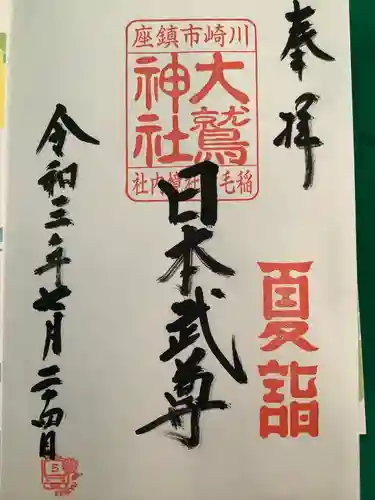 奉拝
夏詣
川崎市鎮座
大鷲
神社
稲毛神社境内社
日本武尊
令和三年七月二十四日